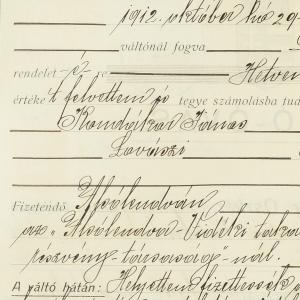 1912. október hó 29
váltónál fogva
rendelet-é-re Hetven
értéke felvettem és tegye számolásba tud
Kondákor János
Lovászi
Fizetendő Alsólendván
az "Alsólendva-Vidéki taka
részvény-társaság"-nál.
A váltó hátán: Helyettem fizettessék